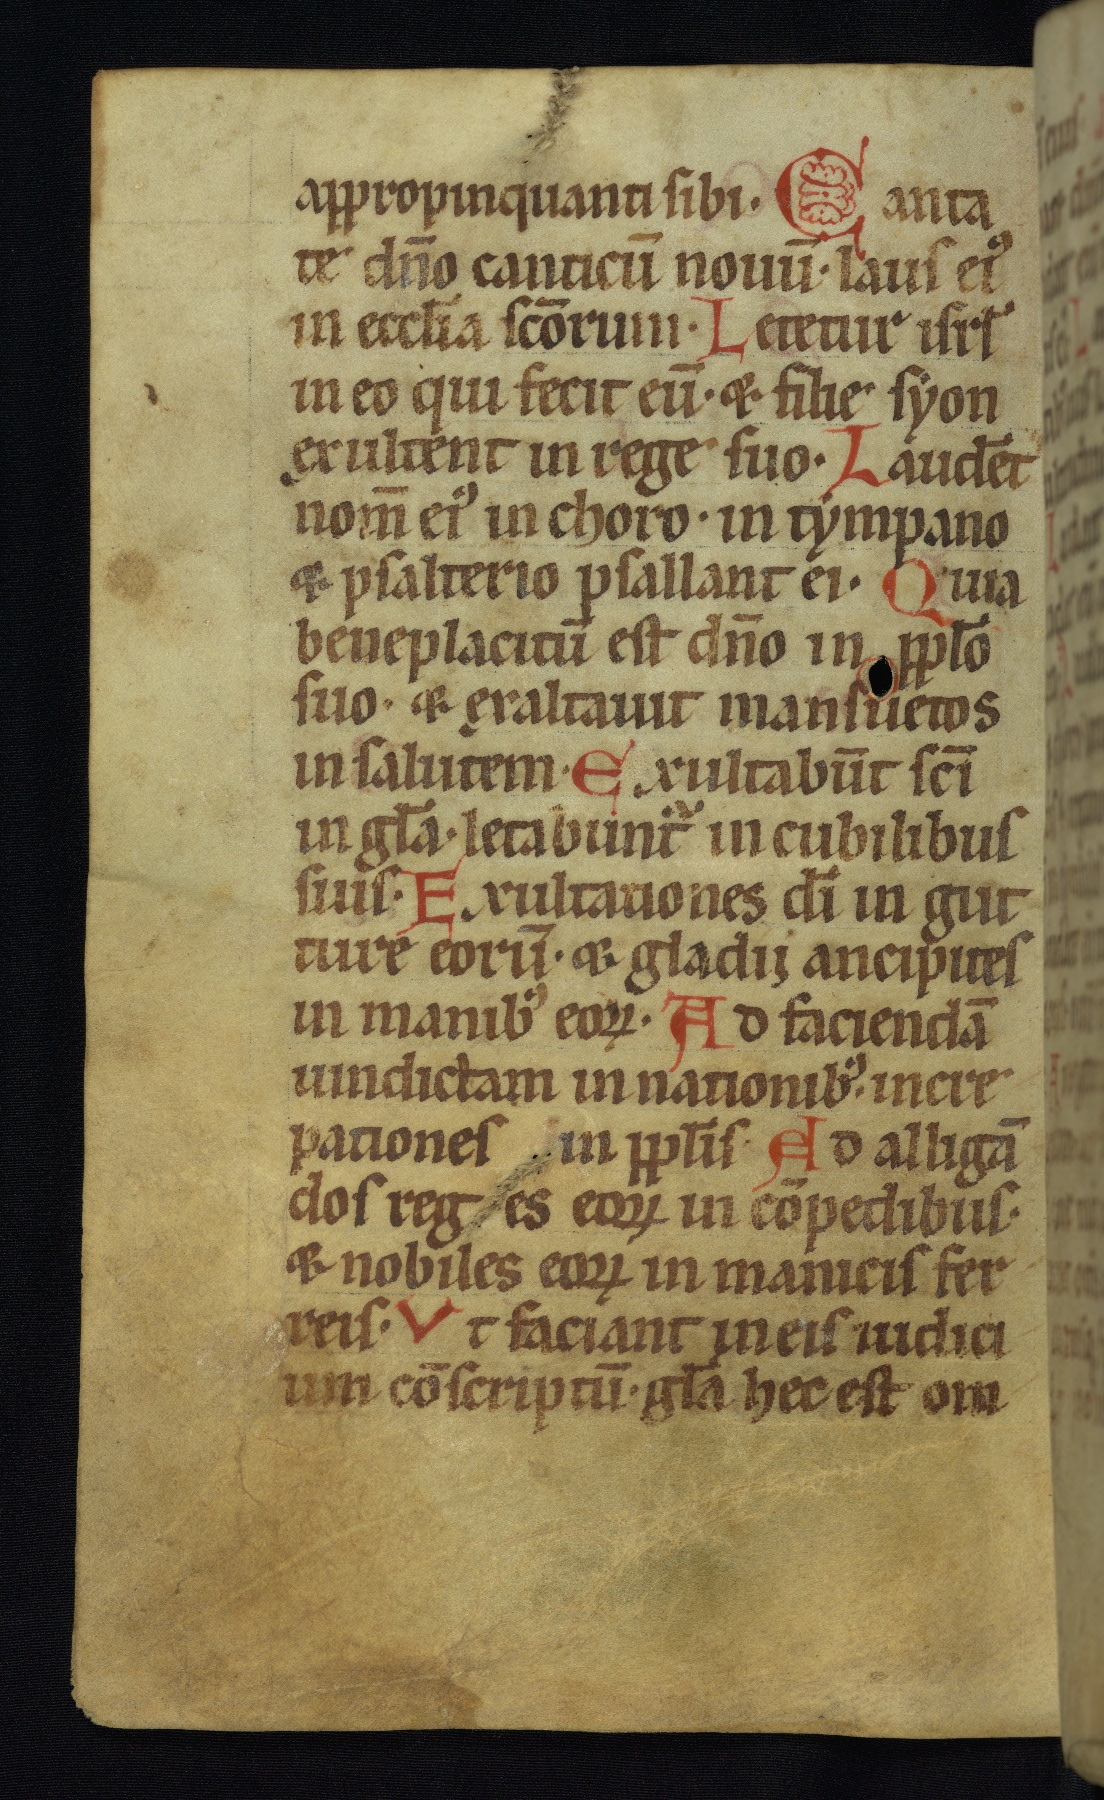 appropinquanti sibi. Canta
te dn̄o canticū nouū. laus ei᾽
in eccl̄ia sc̄orum. Letetur isrl̄
in eo qui fecit eū. & filie syon
exultent in rege suo. Laudēt
nom̄ ei᾽ in choro. in tympano
& psalterio psallant ei. Quia
beneplacitū est dn̄o in ppl̄o
suo. & exaltauit mansuetos
in salutem. Exultabūt sc̄i
in gl̄a. letabunt᷑ in cubilibus
suis. Exultationes dī in gut
ture eorū. & gladij ancipites
in manib᾽ eoꝝ. Ad faciendā
uindictam in nationib᾽. incre
pationes in ppl̄is. Ad alligā
dos reg es eoꝝ in cōpedibus.
& nobiles eoꝝ in manicis fer
reis. Vt faciant in eis iudici
um cōscriptū. gl̄a hec est om